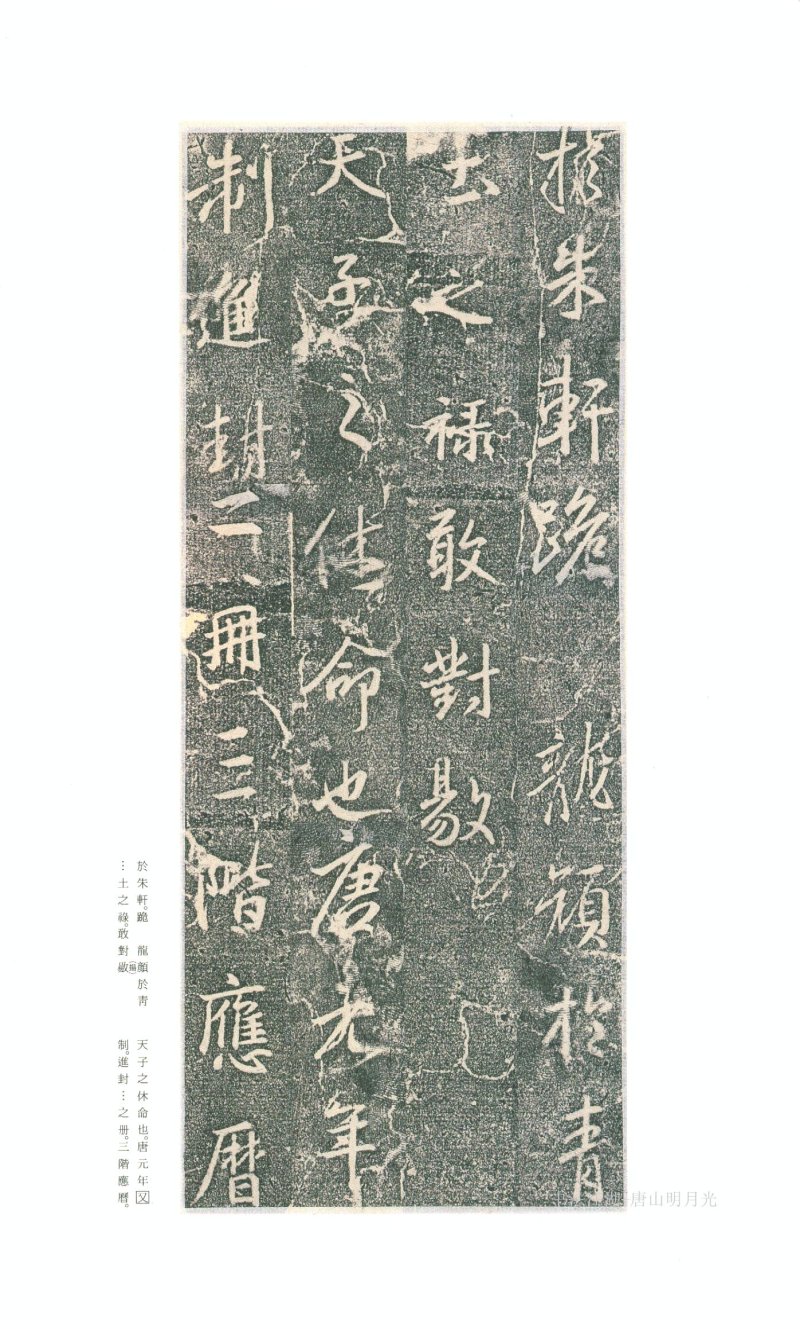 於朱軒跪龍顏於青
土之祿敢對敭
天子之休命也唐元年
制進封二、冊三階應曆
於朱軒。跪　龍顏於青
…土之祿。敢對敭(揚)
天子之休命也。唐元年又
制。進封…之册。三階應曆。
唐山明月光